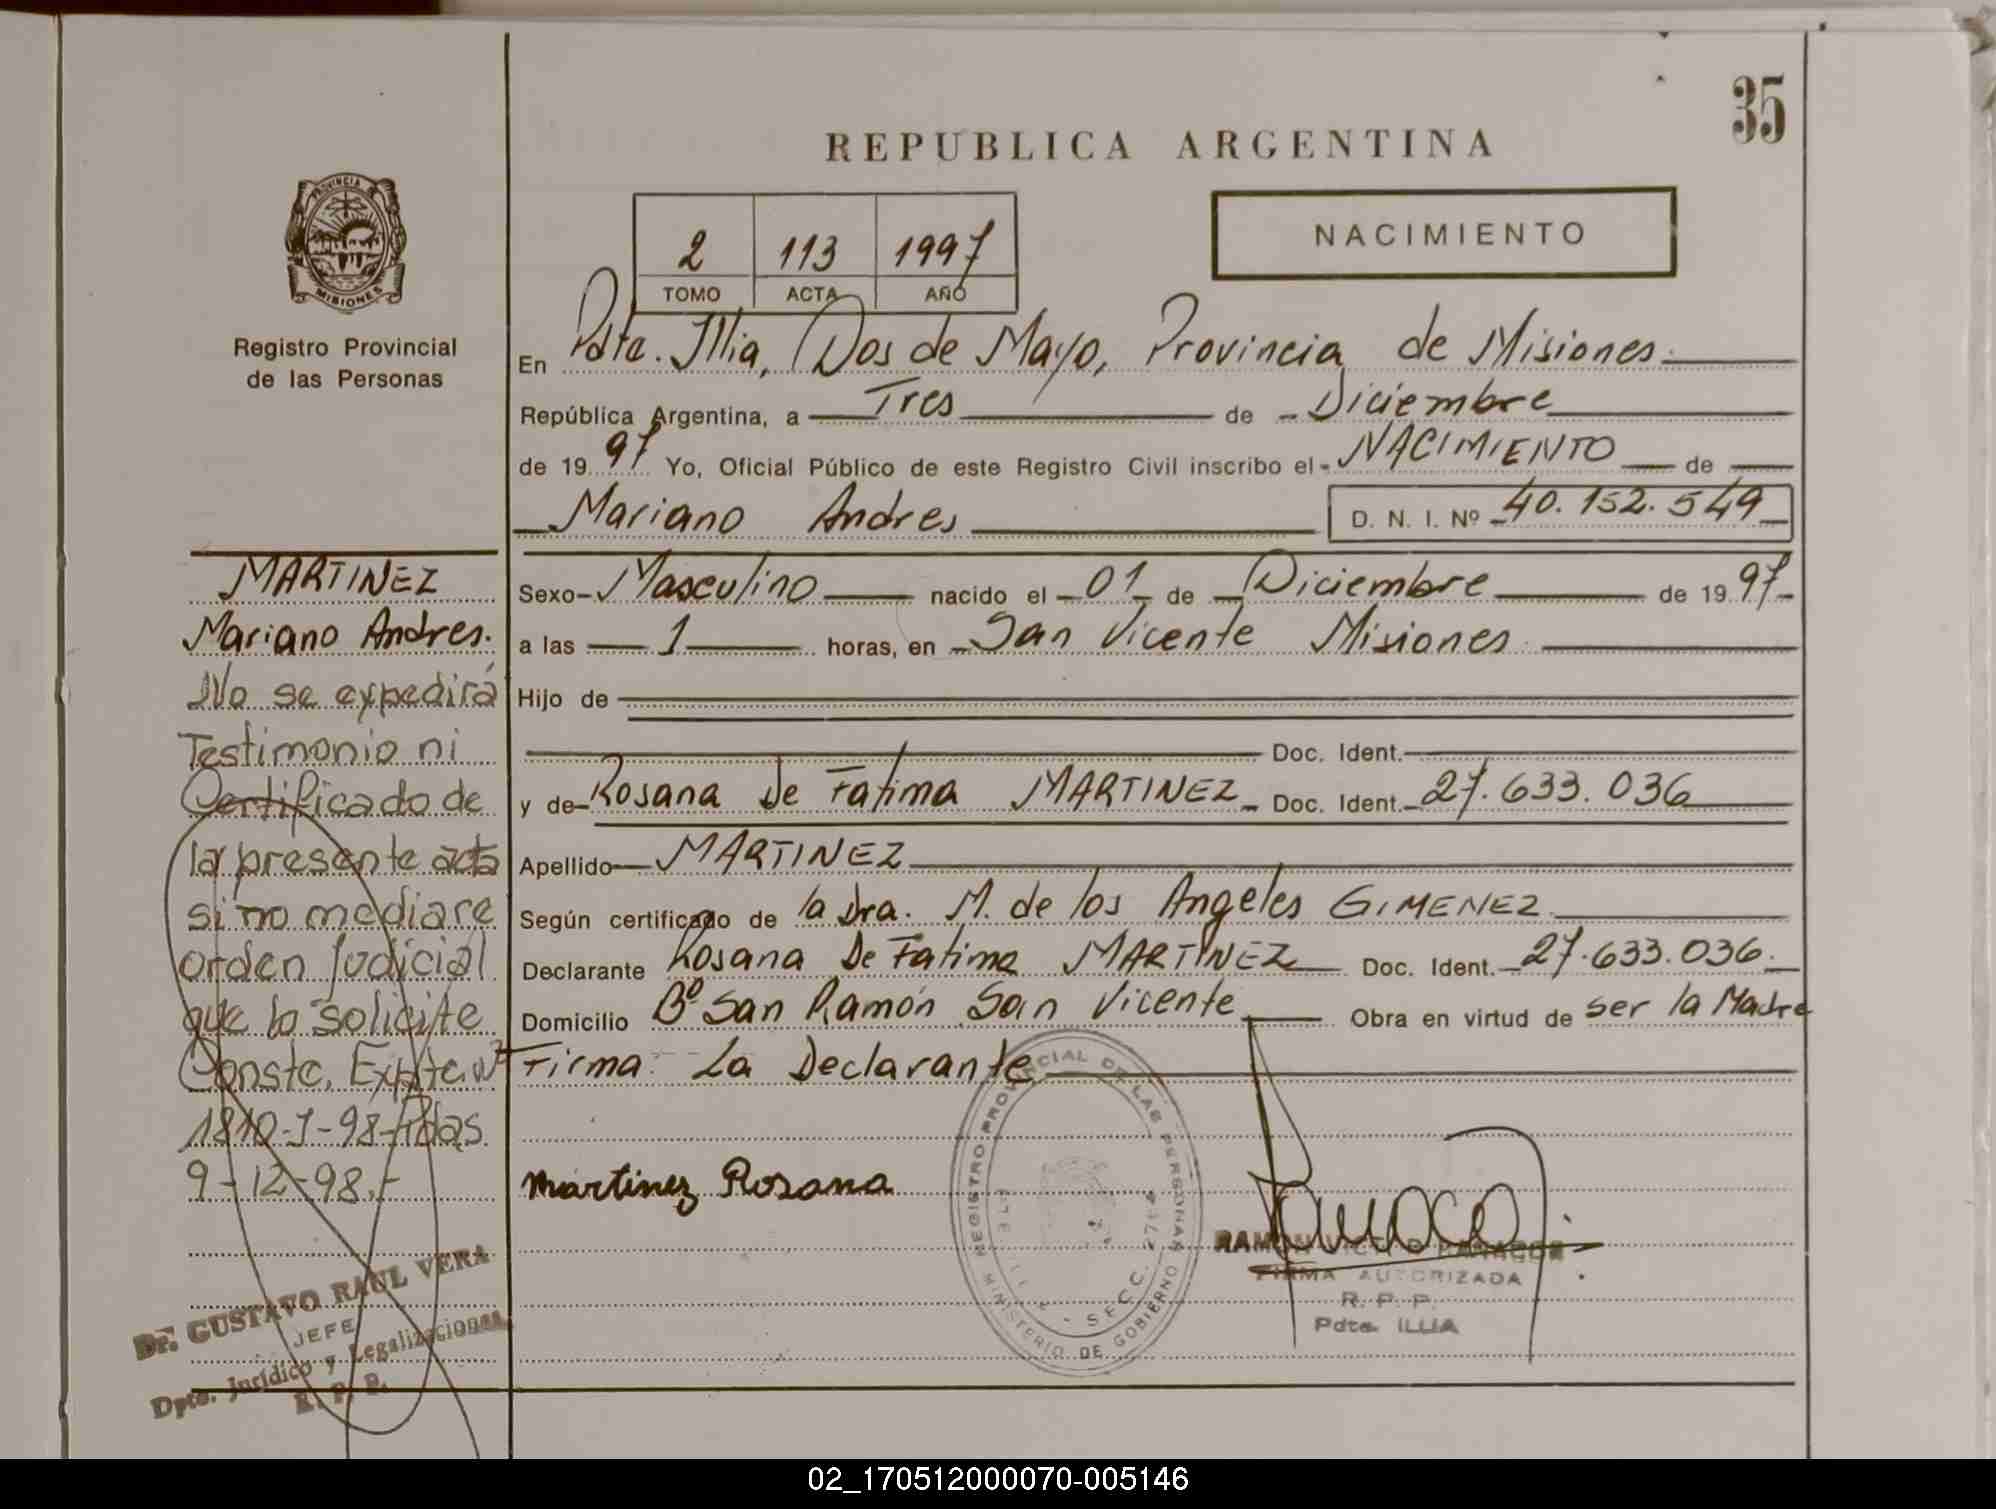 35
REPUBLICA ARGENTINA
PROVINCIA DE
MISIONES
Registro Provincial
de las Personas
2 113 1997
TOMO ACTA AÑO
NACIMIENTO
En Pdte. Illia, Dos de Mayo, Provincia de Misiones
República Argentina, a Tres de Diciembre
de 1997 Yo, Oficial Público de este Registro Civil inscribo el NACIMIENTO de
Mariano Andres D. N. I. Nº 40.152.549
Sexo Masculino nacido el 01 de Diciembre de 1997
a las 1 horas, en San Vicente Misiones
Hijo de
Doc. Ident.
y de Rosana De Fatima MARTINEZ Doc. Ident. 27.633.036
Apellido MARTINEZ
Según certificado de la Dra. M. de los Angeles GIMENEZ
Declarante Rosana De Fatima MARTINEZ Doc. Ident. 27.633.036.
Domicilio Bº San Ramón San Vicente Obra en virtud de ser la Madre
Firma: La Declarante
Martinez Rosana
REGISTRO PROVINCIAL DE LAS PERSONAS
MINISTERIO DE GOBIERNO
SECC.
RAMON
FIRMA AUTORIZADA
R. P. P.
Pdte. ILLIA
MARTINEZ
Mariano Andres.
No se expedirá
Testimonio ni
Certificado de
la presente acta
si no mediare
orden Judicial
que lo solicite
Conste. Expte. Nº
1810-J-98-Pdas
9-12-98.-
Dr. GUSTAVO RAUL VERA
JEFE
Dpto. Jurídico y Legalizaciones
R. P. P.
02_170512000070-005146